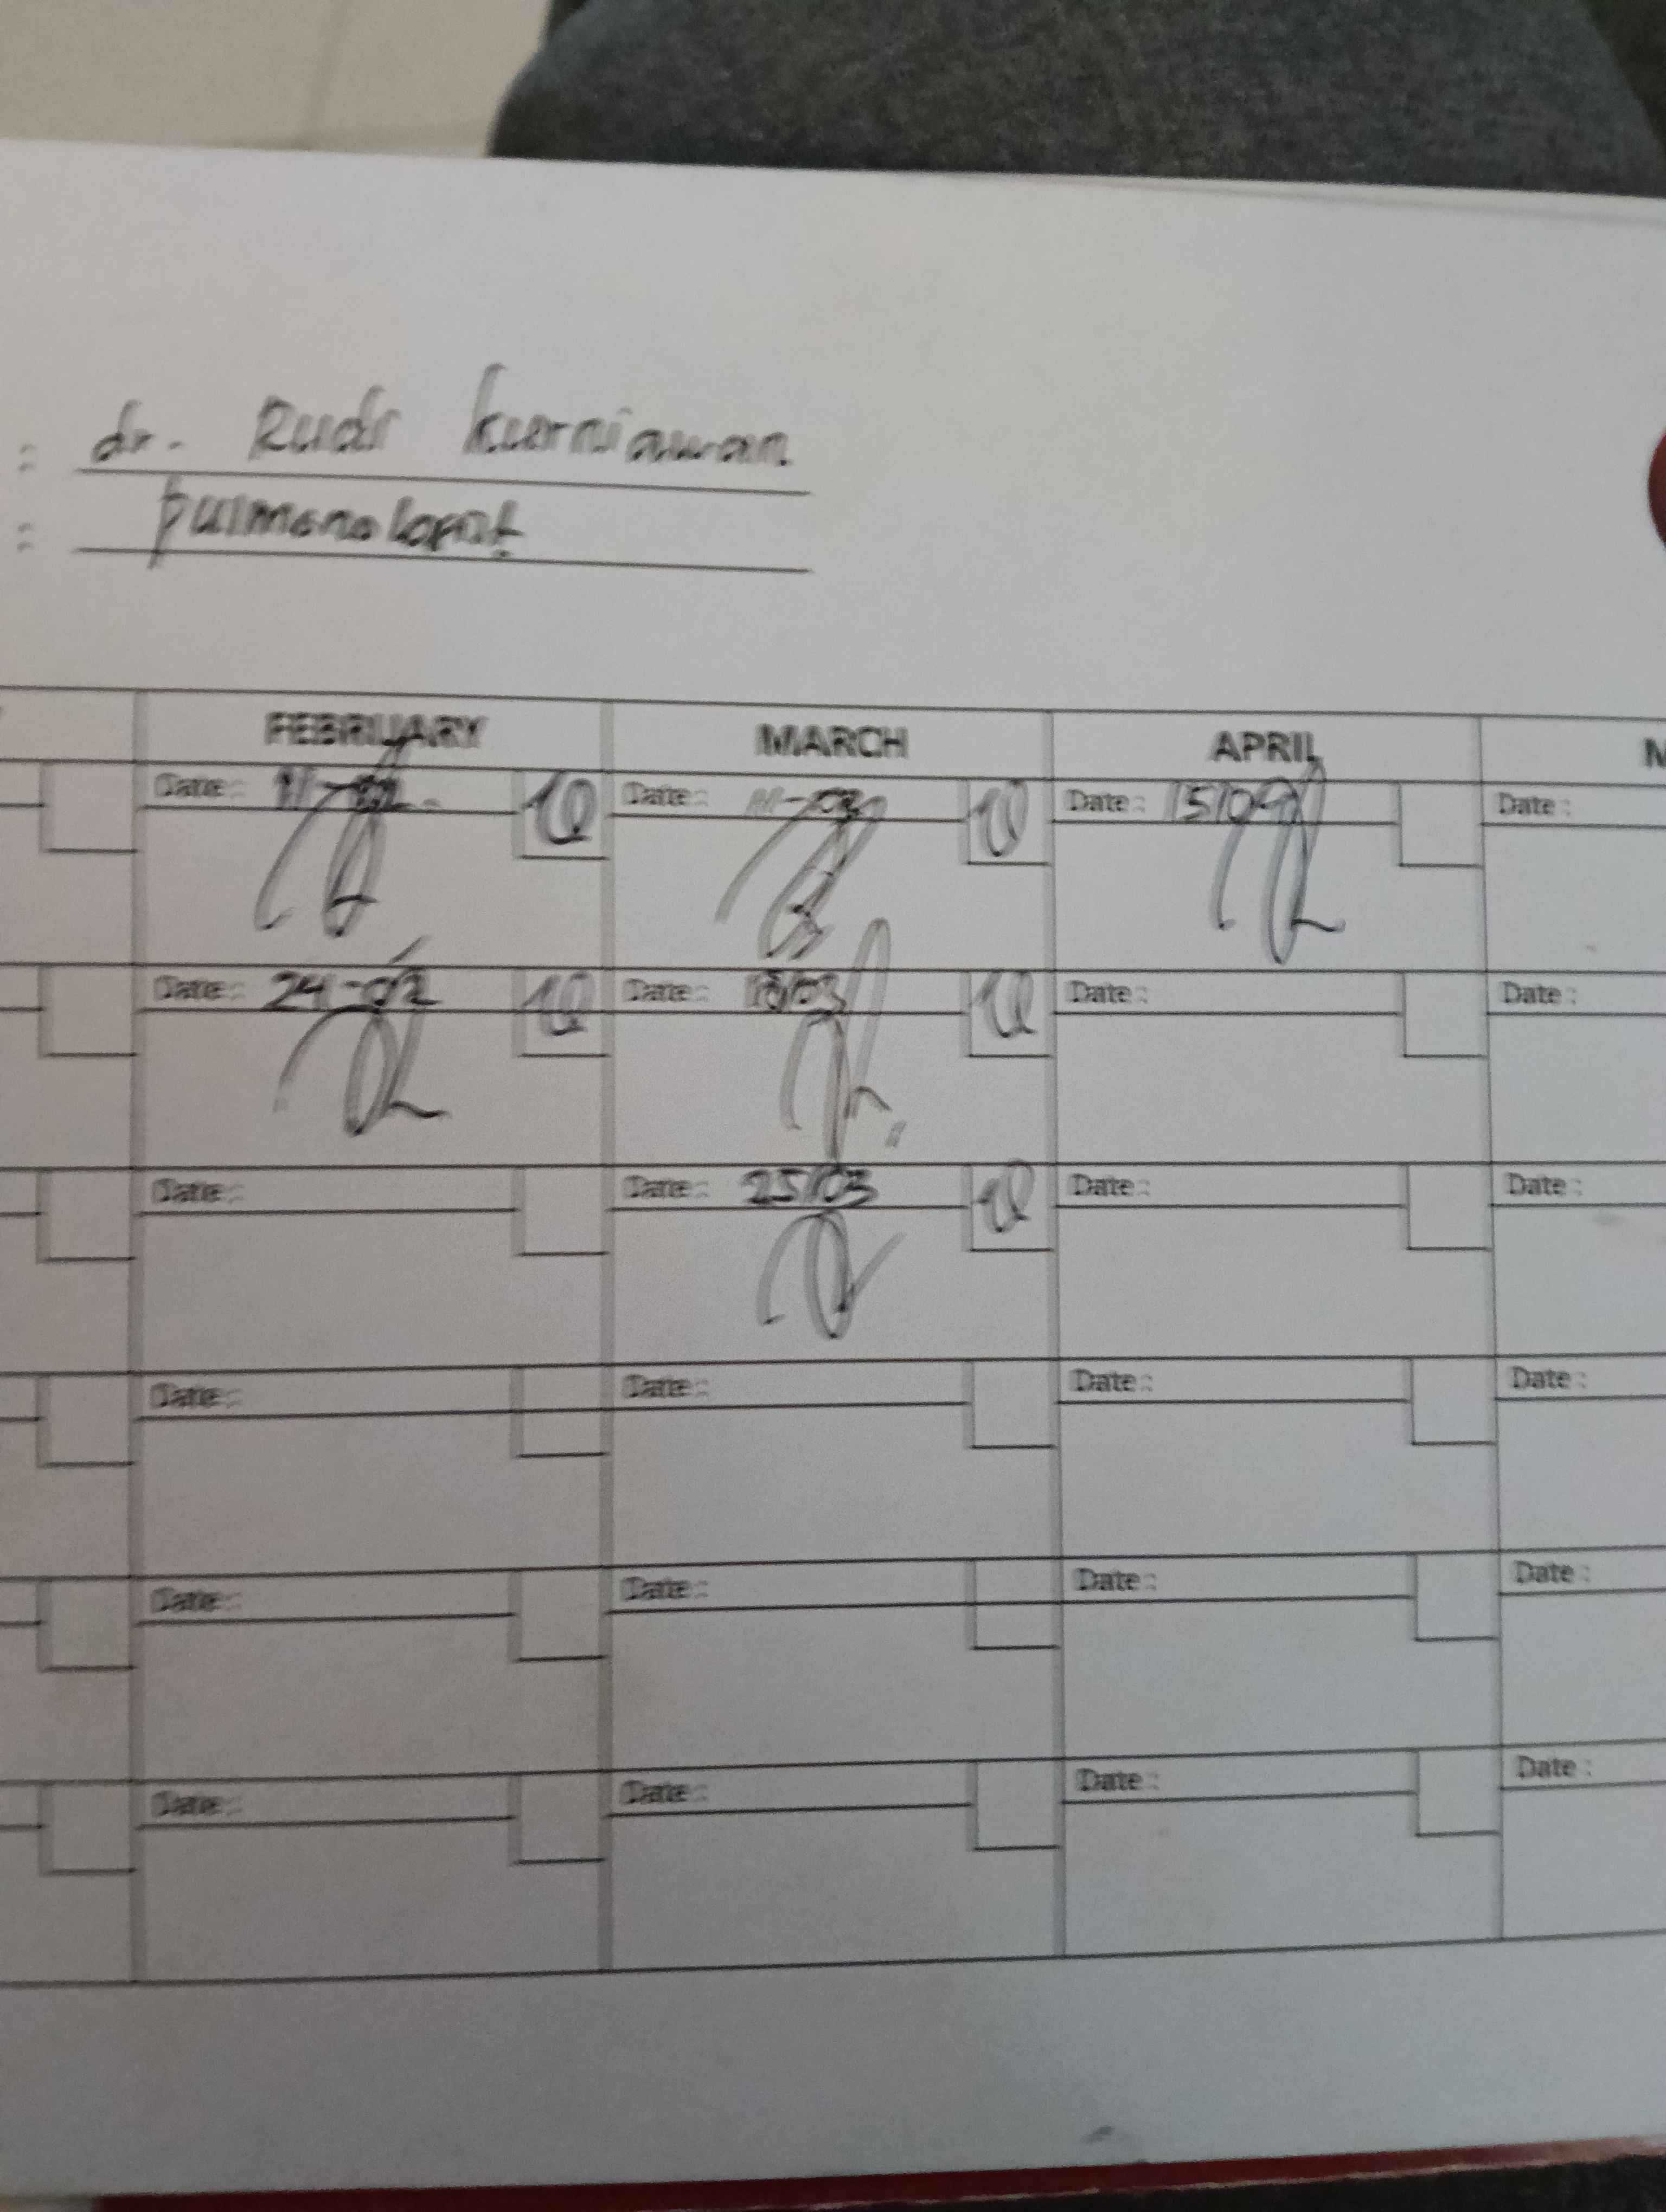 : dr. Rudi kurniawan
: pulmonologist
FEBRUARY MARCH APRIL
Date: 11-02 Date: 11-03 Date: 15/04 Date:
Date: 24-02 Date: 18/03 Date: Date:
Date: Date: 25/03 Date: Date:
Date: Date: Date: Date:
Date: Date: Date: Date:
Date: Date: Date: Date: